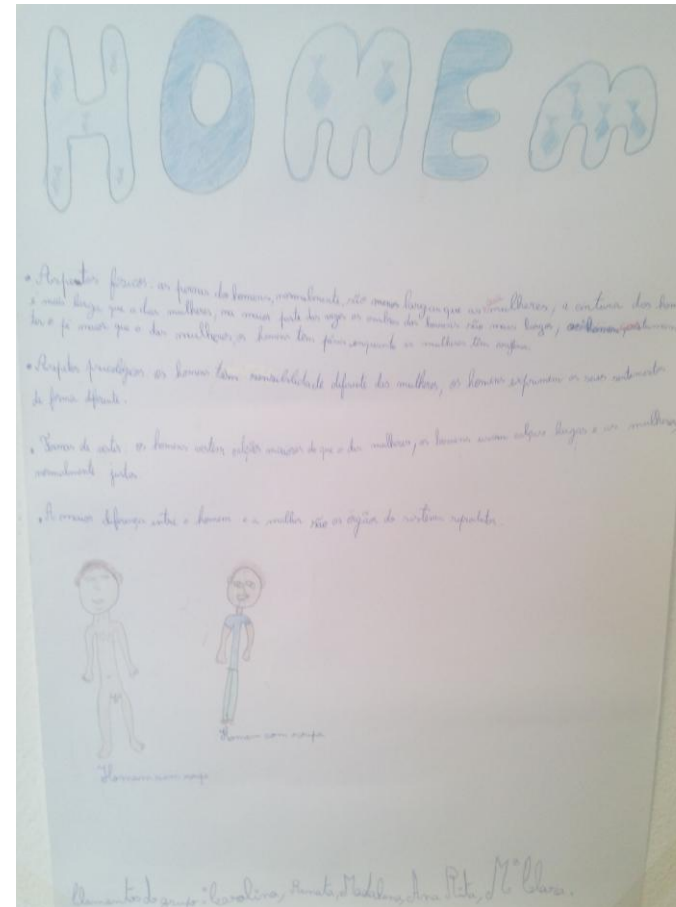 HOMEM
• Aspetos físicos: as pernas dos homens, normalmente, são menos largas que as mulheres, a cintura dos
é mais larga que a das mulheres, na maior parte das vezes os ombros dos homens são mais largos,
o pé maior que o das mulheres, os homens têm pénis enquanto as mulheres têm vagina.
• Aspetos psicológicos: os homens têm sensibilidade diferente das mulheres, os homens exprimem os seus sentimentos
de forma diferente.
• Formas de vestir: os homens vestem calções maiores do que o das mulheres, os homens usam calças largas e as mulheres
normalmente justas.
• A maior diferença entre o homem e a mulher são os órgãos do sistema reprodutor.
Homem com roupa
Homem sem roupa
Elementos do grupo: Carolina, Renata, Madalena, Ana Rita, Mª Clara.